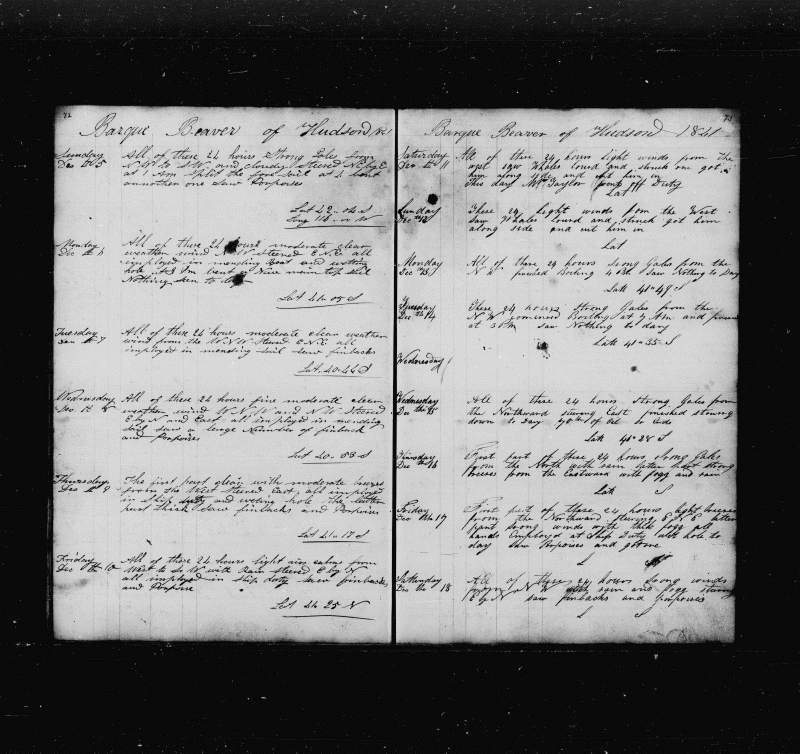 72
Barque Beaver of Hudson
Sunday
Dec th 5
All of these 24 hours Strong Gales from
N.W. to S.W. and cloudy Steered N.E. by E
at 1 Am Split the fore Sail at 4
another one Saw Porpoises
Lat 42 - 04 S
Long 116 - 00 W
Monday
Dec th 6
All of these 24 hours moderate clear
weather wind N.W. Steered E.N.E. all
imployed in mending Boat and
hole at 3 Pm bent a New main top Sail
Nothing seen to day
Lat 41 - 05 S
Tuesday
th 7
All of these 24 hours moderate clear weather
wind from the W.N.W Stered E.N.E. all
imployed in mending Sail Saw finbacks
Lat. 40 - 44 S
Wednwsday
Dec th 8
All of these 24 hours fine moderate clear
weather wind W.N.W and N.W. Steered
E by N and East all imployed in mending
Sail Saw a large Number of finback
and Porpoises
Lat 40 - 58 S
Thursday
Dec th 9
The first part clear with moderate breezes
from the West Steered East, all imployed
in Ship duty and hole the latter
part thick Saw finbacks and Porpoises
Lat 41 - 17 S
Friday
Dec th 10
All of these 24 hours light airs calms from
West to S.W with Rain Stered E by N
all imployed in Ship duty Saw finbacks
and Porpoise
Lat 41 25 N
73
Barque Beaver of Hudson 1841
Saturday
Dec th 11
All of these 24 hours light winds from the
west saw Whales loured and struck one got
him along side and cut him in
this day Mr Taylor Duty
Lat
Sunday
Dec th 12
These 24 light winds from the West
Saw Whales loured and struck got him
along side and cut him in
Lat
Monday
Dec th 13
All of these 24 hours Srong Gales from the
N W finished Boiling Saw Nothing to Day
Lat 41 - 49 S
Tuesday
Dec th 14
These 24 hours Strong Gales from the
N W Comenced Boiling at 9 Am and
at 3 Pm saw Nothing to day
Lat 41 - 35 S
Wednesday
Wednesday
Dec th 15
All of these 24 hours Strong Gales from
the Northward steering East finished stowing
down to day of Oil
Lat 41 - 28 S
Thursday
Dec th 16
First part of these 24 hours Srong Gales
from the North with rain latter part strong
breeses from the Eastward with fogg and rain
Lat S
Friday
Dec th 17
First part of these 24 hours light breeses
from the Northward steering E N E latter
part Srong winds with thick fogg all
hands Employed at Ship Duty hole to
day saw Porpoises and
Saturday
Dec th 18
All of these 24 hours Srong winds
from N W with rain and fogg stering
E by N saw finbacks and porpoises
L S